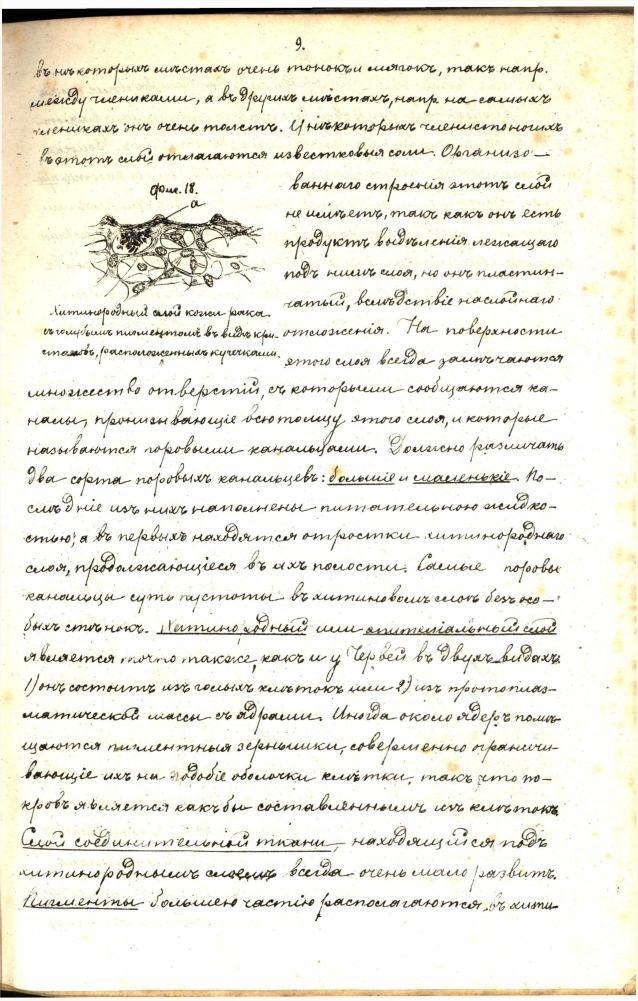 9.
въ нѣкоторыхъ мѣстахъ очень тонокъ и мягокъ, такъ напр.
между члениками, а въ другихъ мѣстахъ, напр. на самыхъ
членикахъ онъ очень толстъ. У нѣкоторыхъ членистоногихъ
въ этотъ слой отлагаются известковыя соли. Организо-
Фиг. 18.
а
Хитинородный слой кожи рака
съ голубымъ пигментомъ въ видѣ кри-
сталовъ, расположенныхъ кучечками.
ваннаго строенія этотъ слой
не имѣетъ, такъ какъ онъ есть
продуктъ выдѣленія лежащаго
подъ нимъ слоя, но онъ пластин-
чатый, вслѣдствіе наслойнаго
отложенія. На поверхности
этого слоя всегда замѣчаются
множество отверстій, съ которыми сообщаются ка-
налы, пронизывающіе всю толщу этого слоя, и которые
называются поровыми канальцами. Должно различать
два сорта поровыхъ канальцевъ: большіе и маленькіе. По-
слѣдніе изъ нихъ наполнены питательною жидко-
стью; а въ первыхъ находятся отростки хитинороднаго
слоя, продолжающіеся въ ихъ полости. Самые поровы
канальцы суть пустоты въ хитиновомъ слоѣ безъ осо-
быхъ стѣнокъ. Хитинородный или эпителіальный слой
является точно также, какъ и у Червей въ двухъ видахъ:
1) онъ состоитъ изъ голыхъ клѣтокъ или 2) изъ протоплаз-
матической массы съ ядрами. Иногда около ядеръ помѣ-
щаются пигментныя зернышки, совершенно ограничи-
вающіе ихъ на подобіе оболочки клѣтки, такъ что по-
кровъ является какъ бы составленнымъ изъ клѣтокъ.
Слой соединительной ткани, находящійся подъ
хитинороднымъ слоемъ всегда очень мало развитъ.
Пигменты большею частію располагаются въ хити-